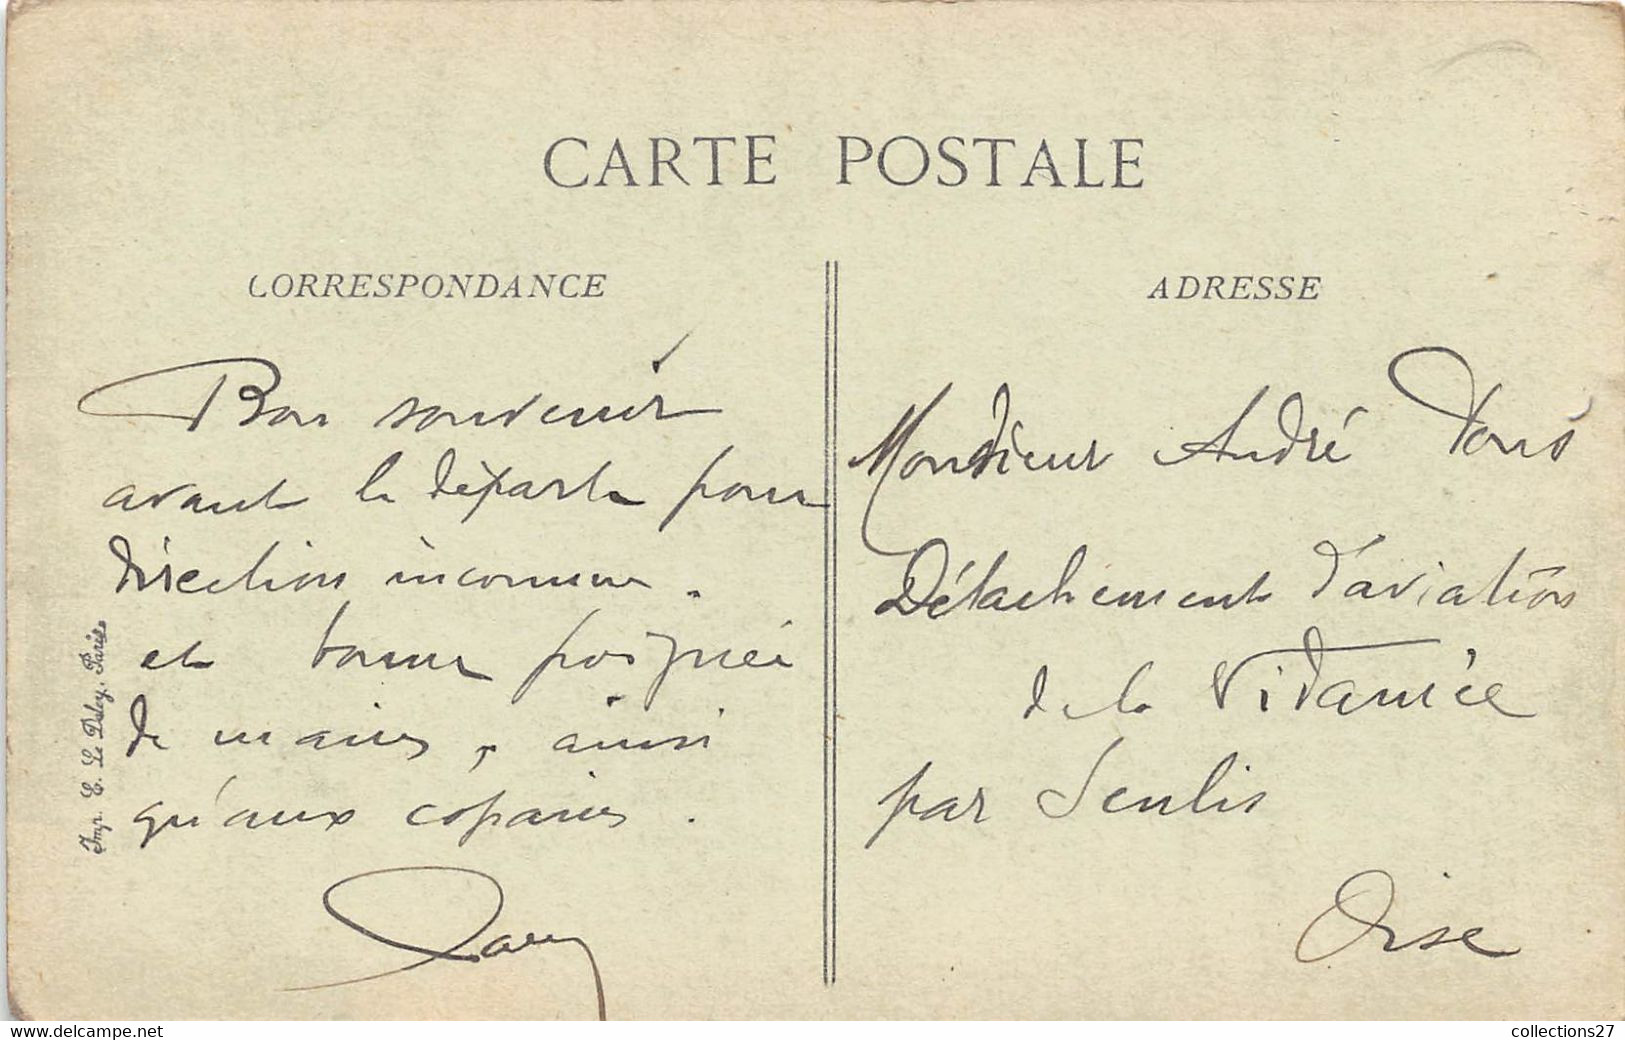 CARTE POSTALE
CORRESPONDANCE
Bon souvenir
avant le départ pour
direction inconnue.
et bonne poignée
de mains, ainsi
qu'aux copains.
Imp. E. Le Deley, Paris
ADRESSE
Monsieur André
Détachement d'aviation
de la Vidamée
par Senlis
Oise
www.delcampe.net
collections27